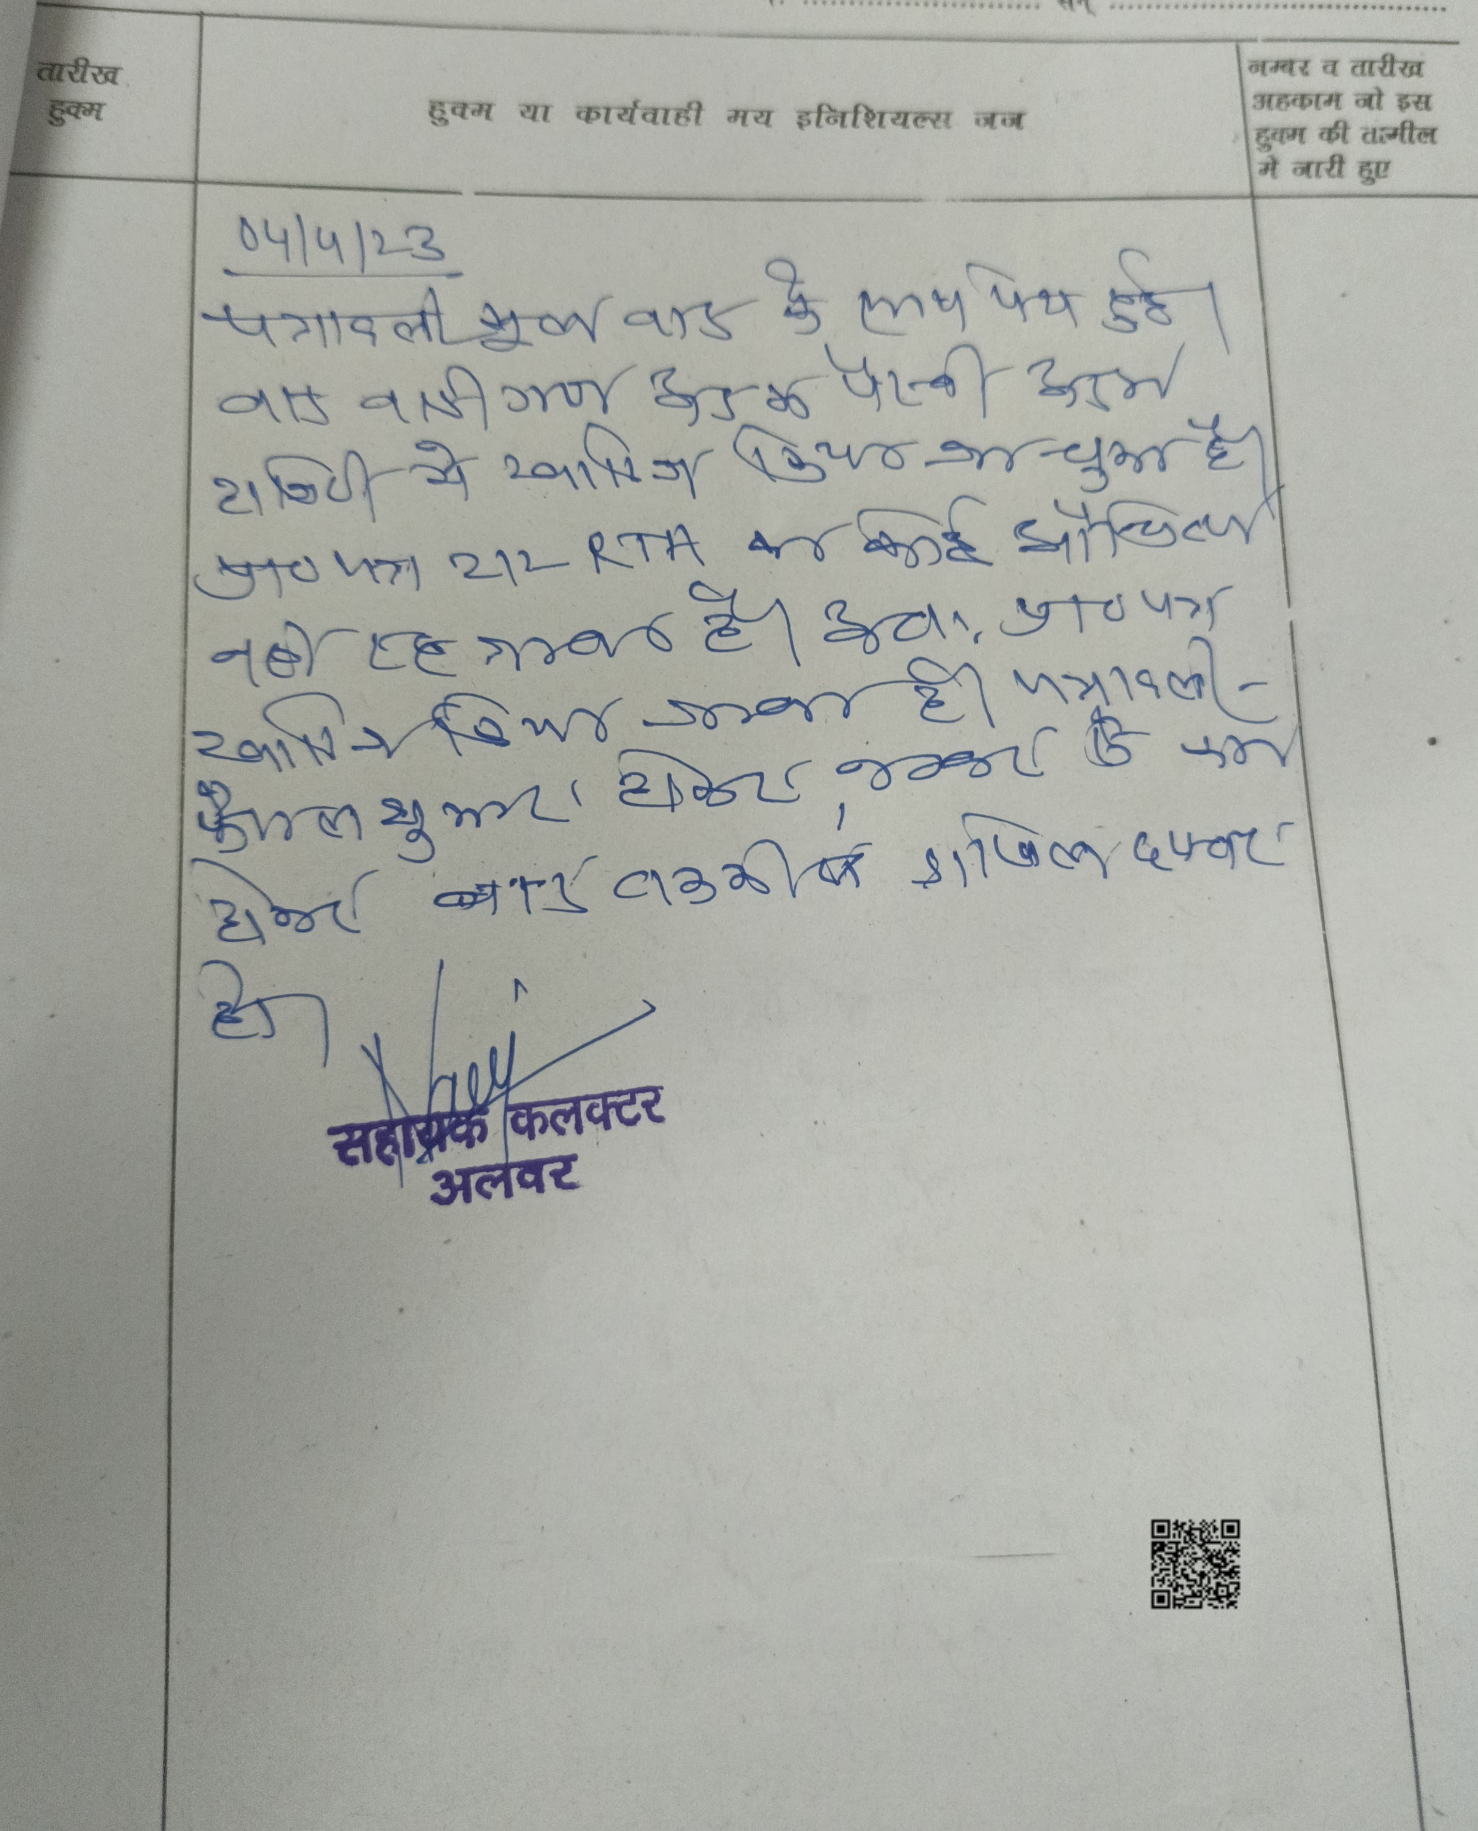 सन्
तारीख
हुक्म
हुक्म या कार्यवाही मय इनिशियल्स जज
नम्बर व तारीख
अहकाम जो इस
हुक्म की तामील
मे जारी हुए
04/4/23
पत्रावली मूल वाद के साथ पेश हुई।
वाद वादी गण अदम पैरवी अदम
हाजिरी में खारिज किया जा चुका है।
प्रा० पत्र 212 RTA का कोई औचित्य
नही रह जाता है। अतः प्रा० पत्र
खारिज किया जाता है। पत्रावली
फैसल शुमार होकर, नम्बर से कम
होकर बाद तकमील दाखिल दफ्तर
हो।
सहायक कलक्टर
अलवर